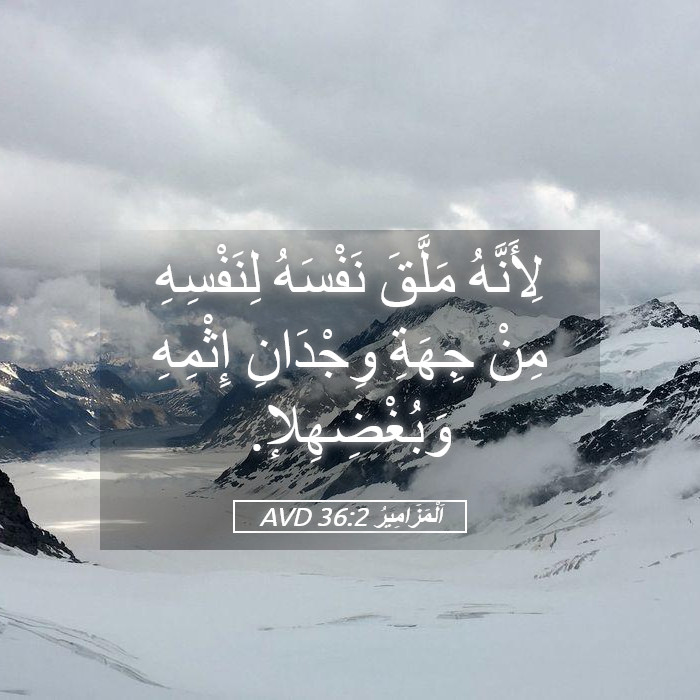 لِأَنَّهُ مَلَّقَ نَفْسَهُ لِنَفْسِهِ
مِنْ جِهَةِ وِجْدَانِ إِثْمِهِ
وَبُغْضِهِلإ.
اَلْمَزَامِيرُ 36:2 AVD